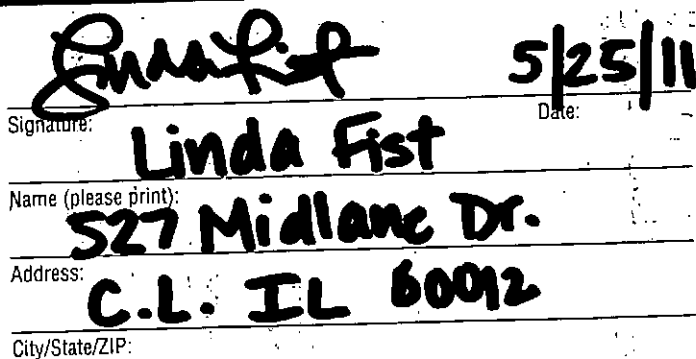 Linda Fist 5/25/11
Signature: Date:
Linda Fist
Name (please print):
527 Midlane Dr.
Address:
C.L. IL 60012
City/State/ZIP: